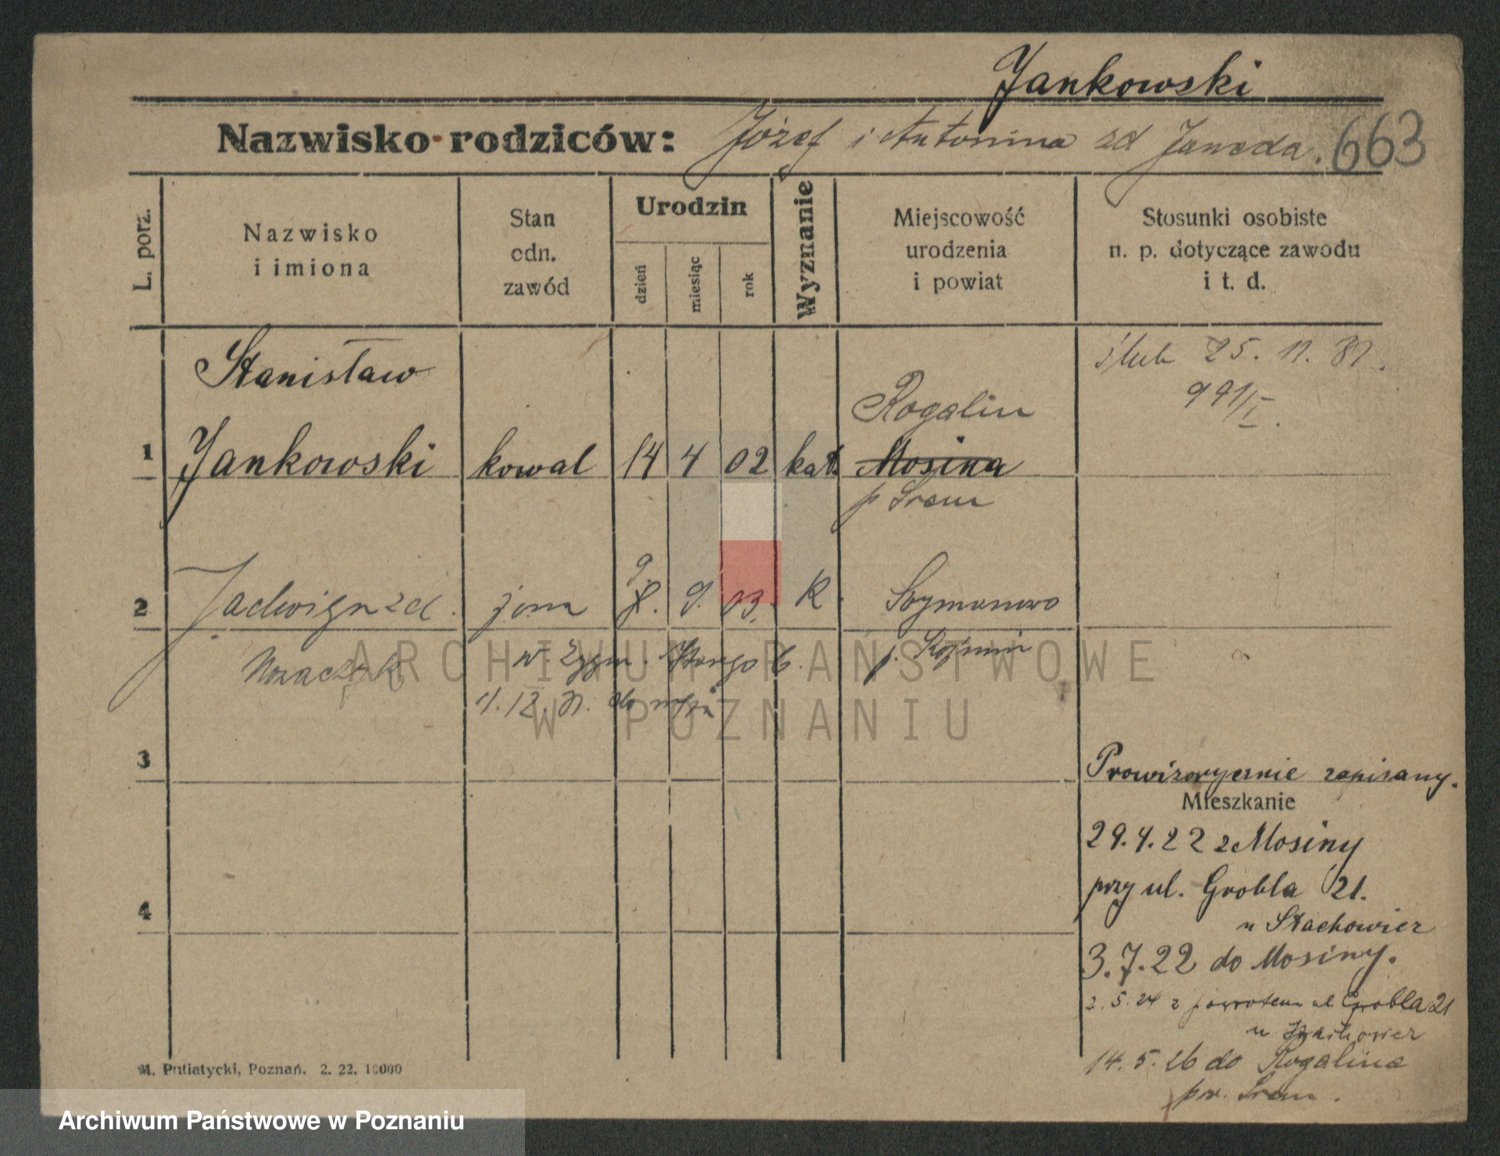 Jankowski
Nazwisko rodziców: Józef i Antonina zd Janeda. 663
L. porz.
Nazwisko
i imiona
Stan
cdn.
zawód
Urodzin
dzień
miesiąc
rok
Wyznanie
Miejscowość
urodzenia
i powiat
Stosunki osobiste
n. p. dotyczące zawodu
i t. d.
Stanisław
1 Jankowski kowal 14 4 02 kat.
Rogalin
Mosina
p Śrem
ślub 25. 11. 31.
991/I.
2 Jadwiga zd. żona 9 8. 9. 03. K.
p.
w. Zygm.
11. 12. 31. do
3
Prowizorycznie zapisany.
Mieszkanie
29.4.22 z Mosiny
przy ul. Grobla 21.
u Stachowicz
3.7.22 do Mosiny.
2.5.24 z powrotem ul Grobla 21
u
14.5.26 do Rogalina
pw. Śrem.
4
M. Putiatycki, Poznań. 2. 22. 10000
ARCHIWUM PAŃSTWOWE
W POZNANIU
Archiwum Państwowe w Poznaniu